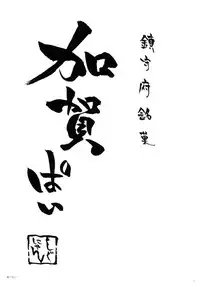 鎮守府銘菓
加賀ぱい